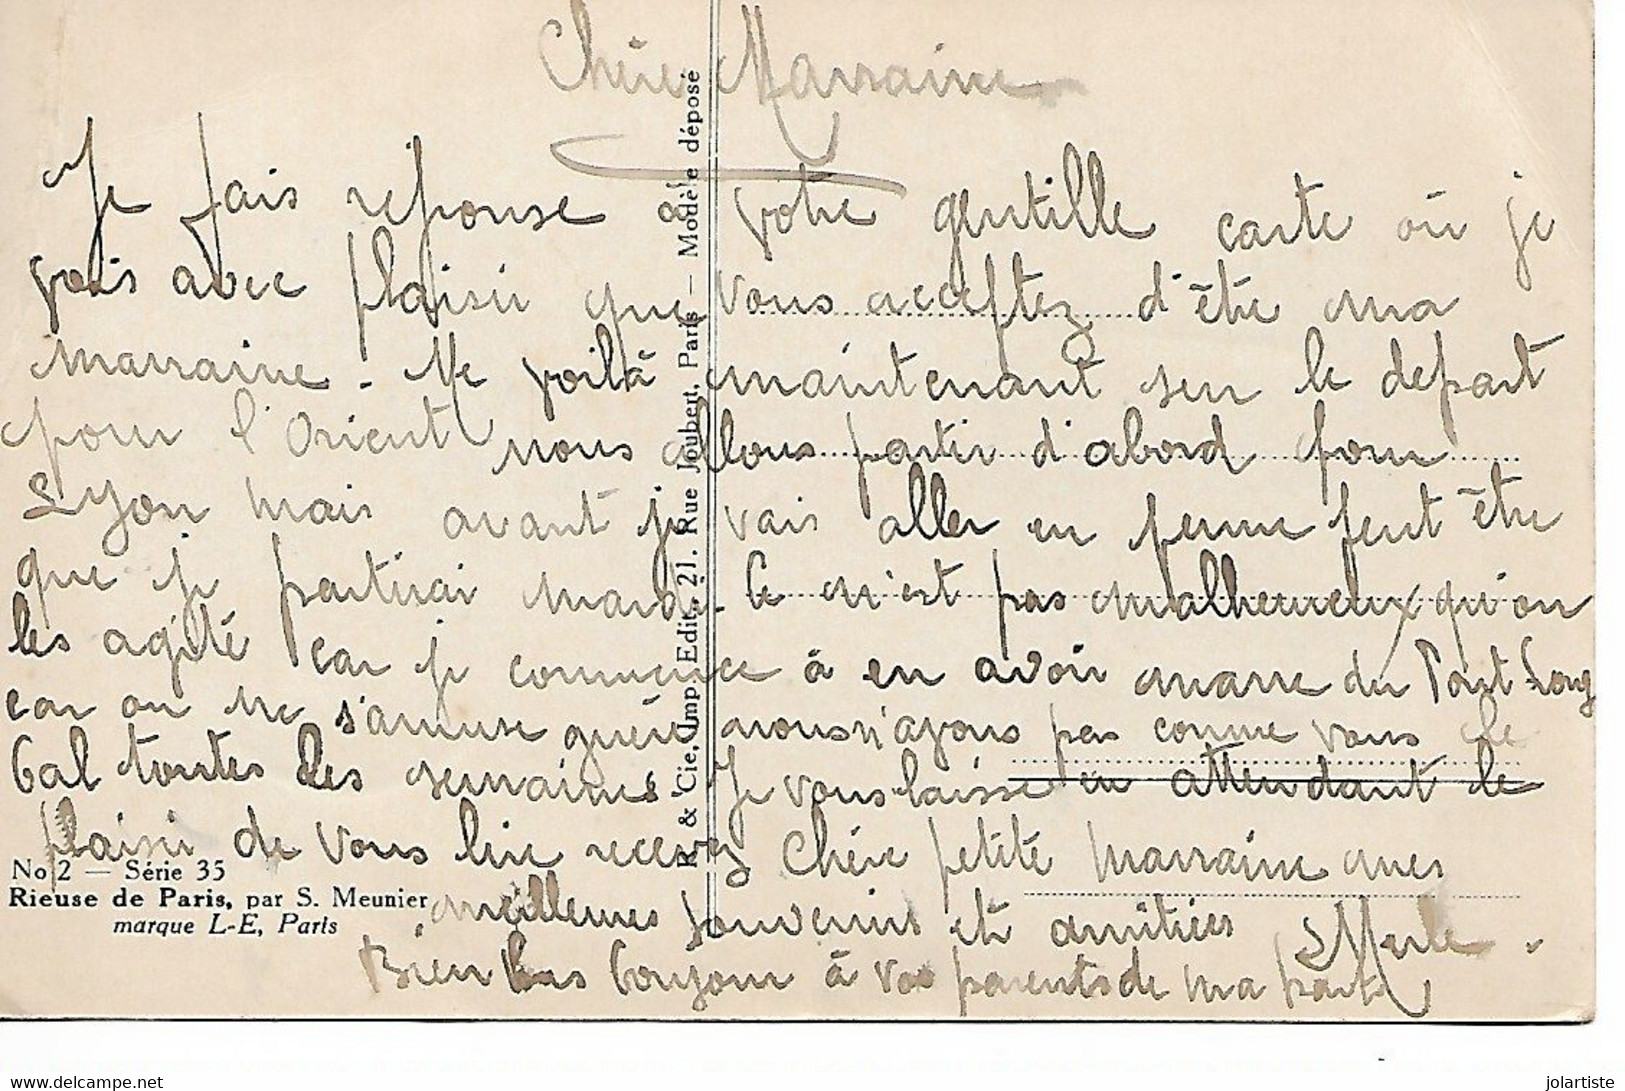 Chère Marraine
Je fais réponse à votre gentille carte où je
vois avec plaisir que vous acceptez d'être ma
marraine. Me voilà maintenant sur le depart
pour l'Orient nous allons partir d'abord pour
Lyon mais avant je vais aller en perme peut être
que je partirai mardi. Ce n'est pas malheureux qu'on
les agité car je commence à en avoir marre du Pont Long
car on ne s'amuse guère nous n'avons pas comme vous le
bal toutes les semaines Je vous laisse en attendant le
plaisir de vous lire recevez Chère petite marraine mes
meilleures souvenirs et amitiées Merle.
Bien bonjour à vos parents de ma part
No 2 — Série 35
Rieuse de Paris, par S. Meunier
marque L-E, Paris
R. & Cie, Imp. Edit., 21, Rue Joubert, Paris — Modèle déposé
jolartiste
delcampe.net